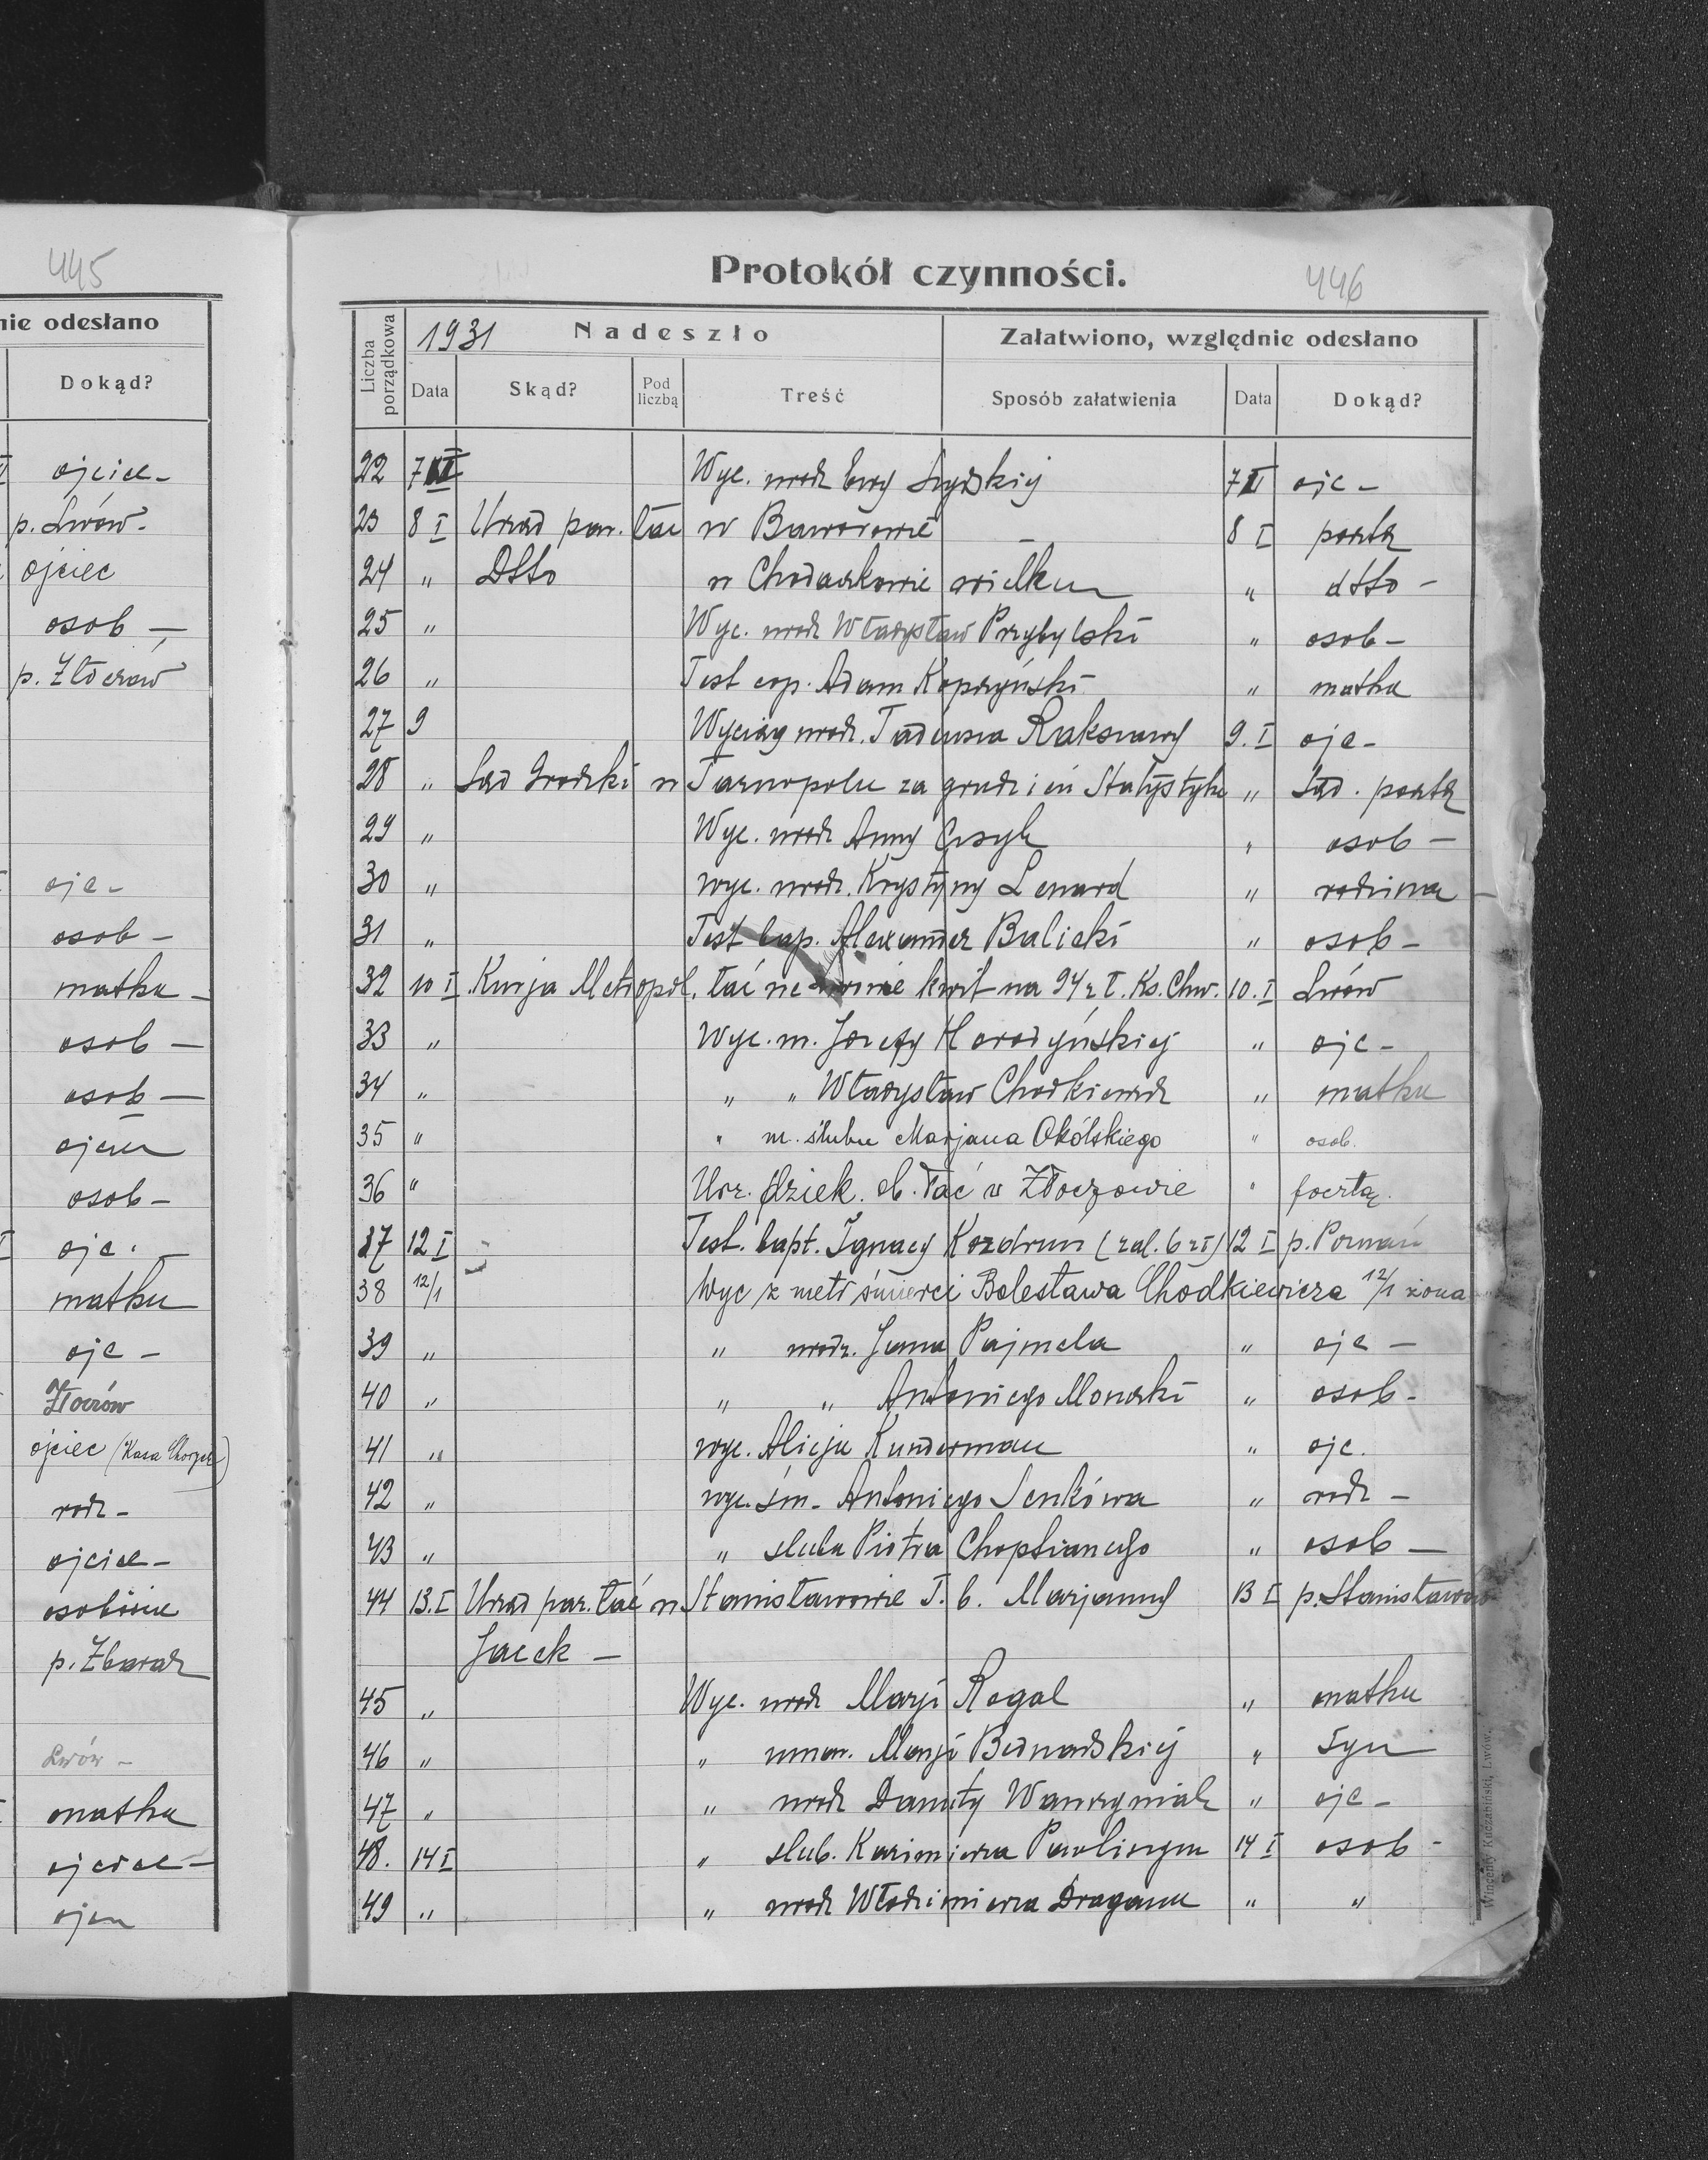 445
nie odesłano
Dokąd?
ojciec -
p. Lwów -
ojciec
osob -
p. Złoczów
ojc -
osob -
matka -
osob -
osob -
ojciec
osob -
ojc. -
matka
ojc -
Złoczów
ojciec
rodz -
ojciec -
osobiście
p. Zbaraż
Lwów -
matka
ojciec -
ojca
Protokół czynności.
446
Liczba porządkowa
1931 Nadeszło
Załatwiono, względnie odesłano
Data Skąd? Pod liczbą Treść Sposób załatwienia Data Dokąd?
22 7 I Wyc. urodz Ewy 7 I ojc -
23 8 I Urząd par. łać w Baworowie - 8 I pocztą
24 " Dtto w Chodaczkowie wielkim " dtto -
25 " Wyc. urodz Władysław Przybylski " osob -
26 " Test cop. Adam Kopczyński " matka
27 9 Wyciąg urodz. Tadeusza Raksnawy 9. I ojc -
28 " Sąd Grodzki w Tarnopolu za grudzień Statystyka " Sąd. pocztą
29 " Wyc. urodz Anny " osob -
30 " wyc. urodz. Krystyny Lenard " rodzina -
31 " Test bap. Alexander Balicki " osob -
32 10 I. Kurja Metropol. łać we Lwowie kwit na 94 zł. Ks. Chw. 10. I Lwów
33 " Wyc. m. Józefy Horodyńskiej " ojc -
34 " " " Władysław Chodkiewicz " matka
35 " " m. ślubu Marjana Okólskiego " osob.
36 " Urz. dziek. ob. łać w Złoczowie " pocztą.
37 12 I Test. bapt. Ignacy Kozdruń (zał. 6 zł) 12 I p. Poznań
38 12/1 Wyc z metr śmierci Bolesława Chodkiewicza 12/1 żona
39 " " urodz. Jana Pajmela " ojc -
40 " " " Antoniego Monski " osob -
41 " wyc. Alicja Kunderman " ojc.
42 " wyc. śm. Antoniego Senkówa " rodz -
43 " " ślubu Piotra Choptianego " osob -
44 13. I Urząd par. łać w Stanisławowie T. b. Marjanny 13 I p. Stanisławów
Jacek -
45 " Wyc. urodz Marji Rogal " matka
46 " " umar. Marji Bednarskiej " Syn
47 " " urodz Danuty Wawrzyniak " ojc -
48. 14 I " ślub. Kazimierza 14 I osob -
49 " " urodz Włodzimierza Dragana " "
Wincenty Kuczabiński, Lwów.